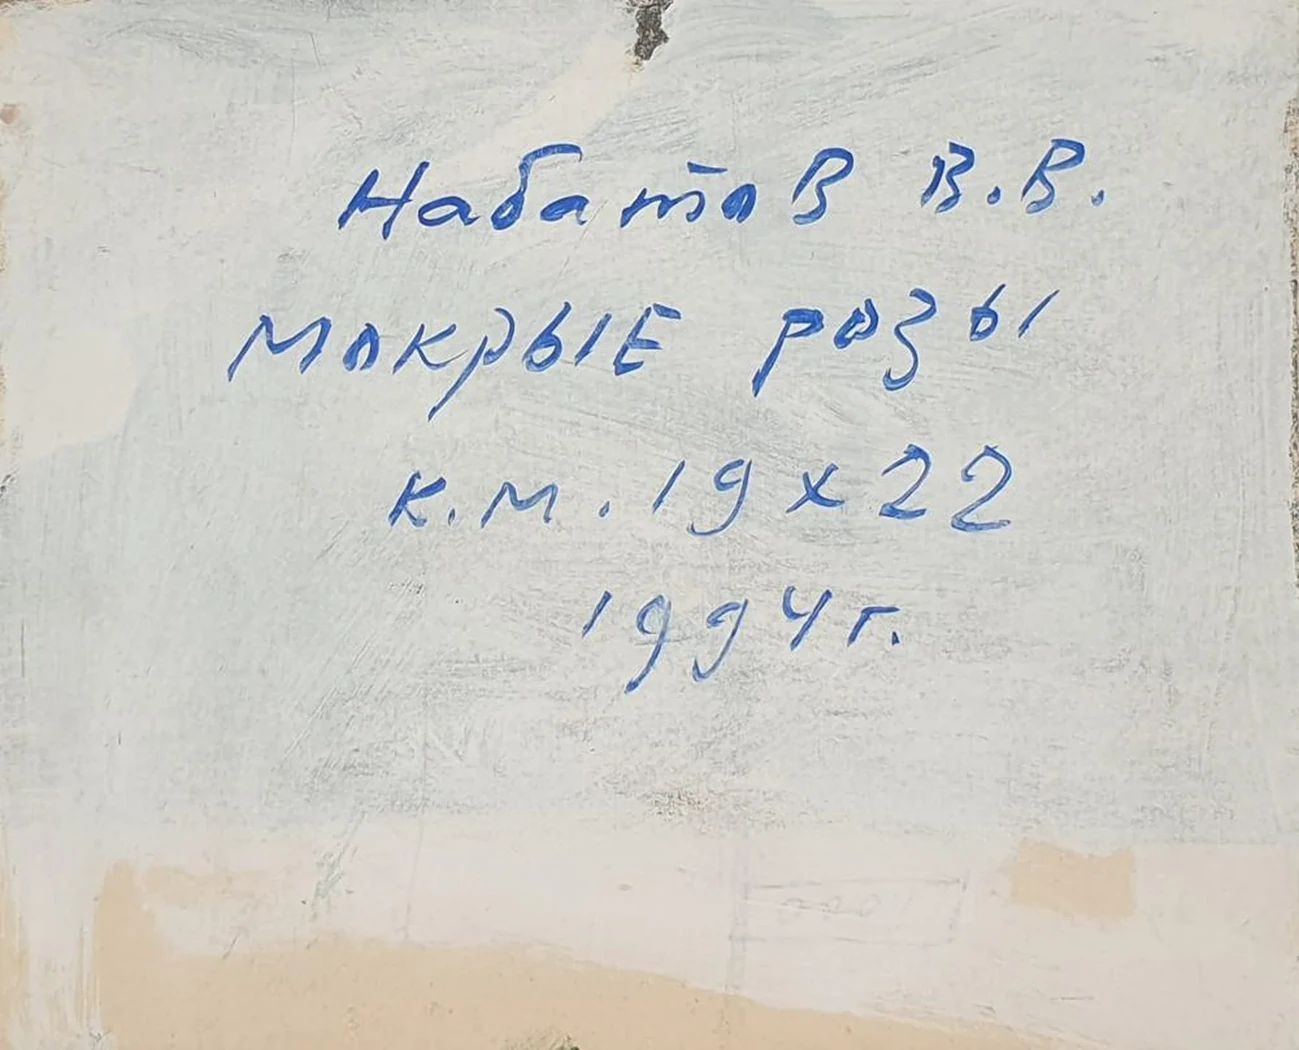 Набатов В.В.
Мокрые розы
к.м. 19х22
1994г.